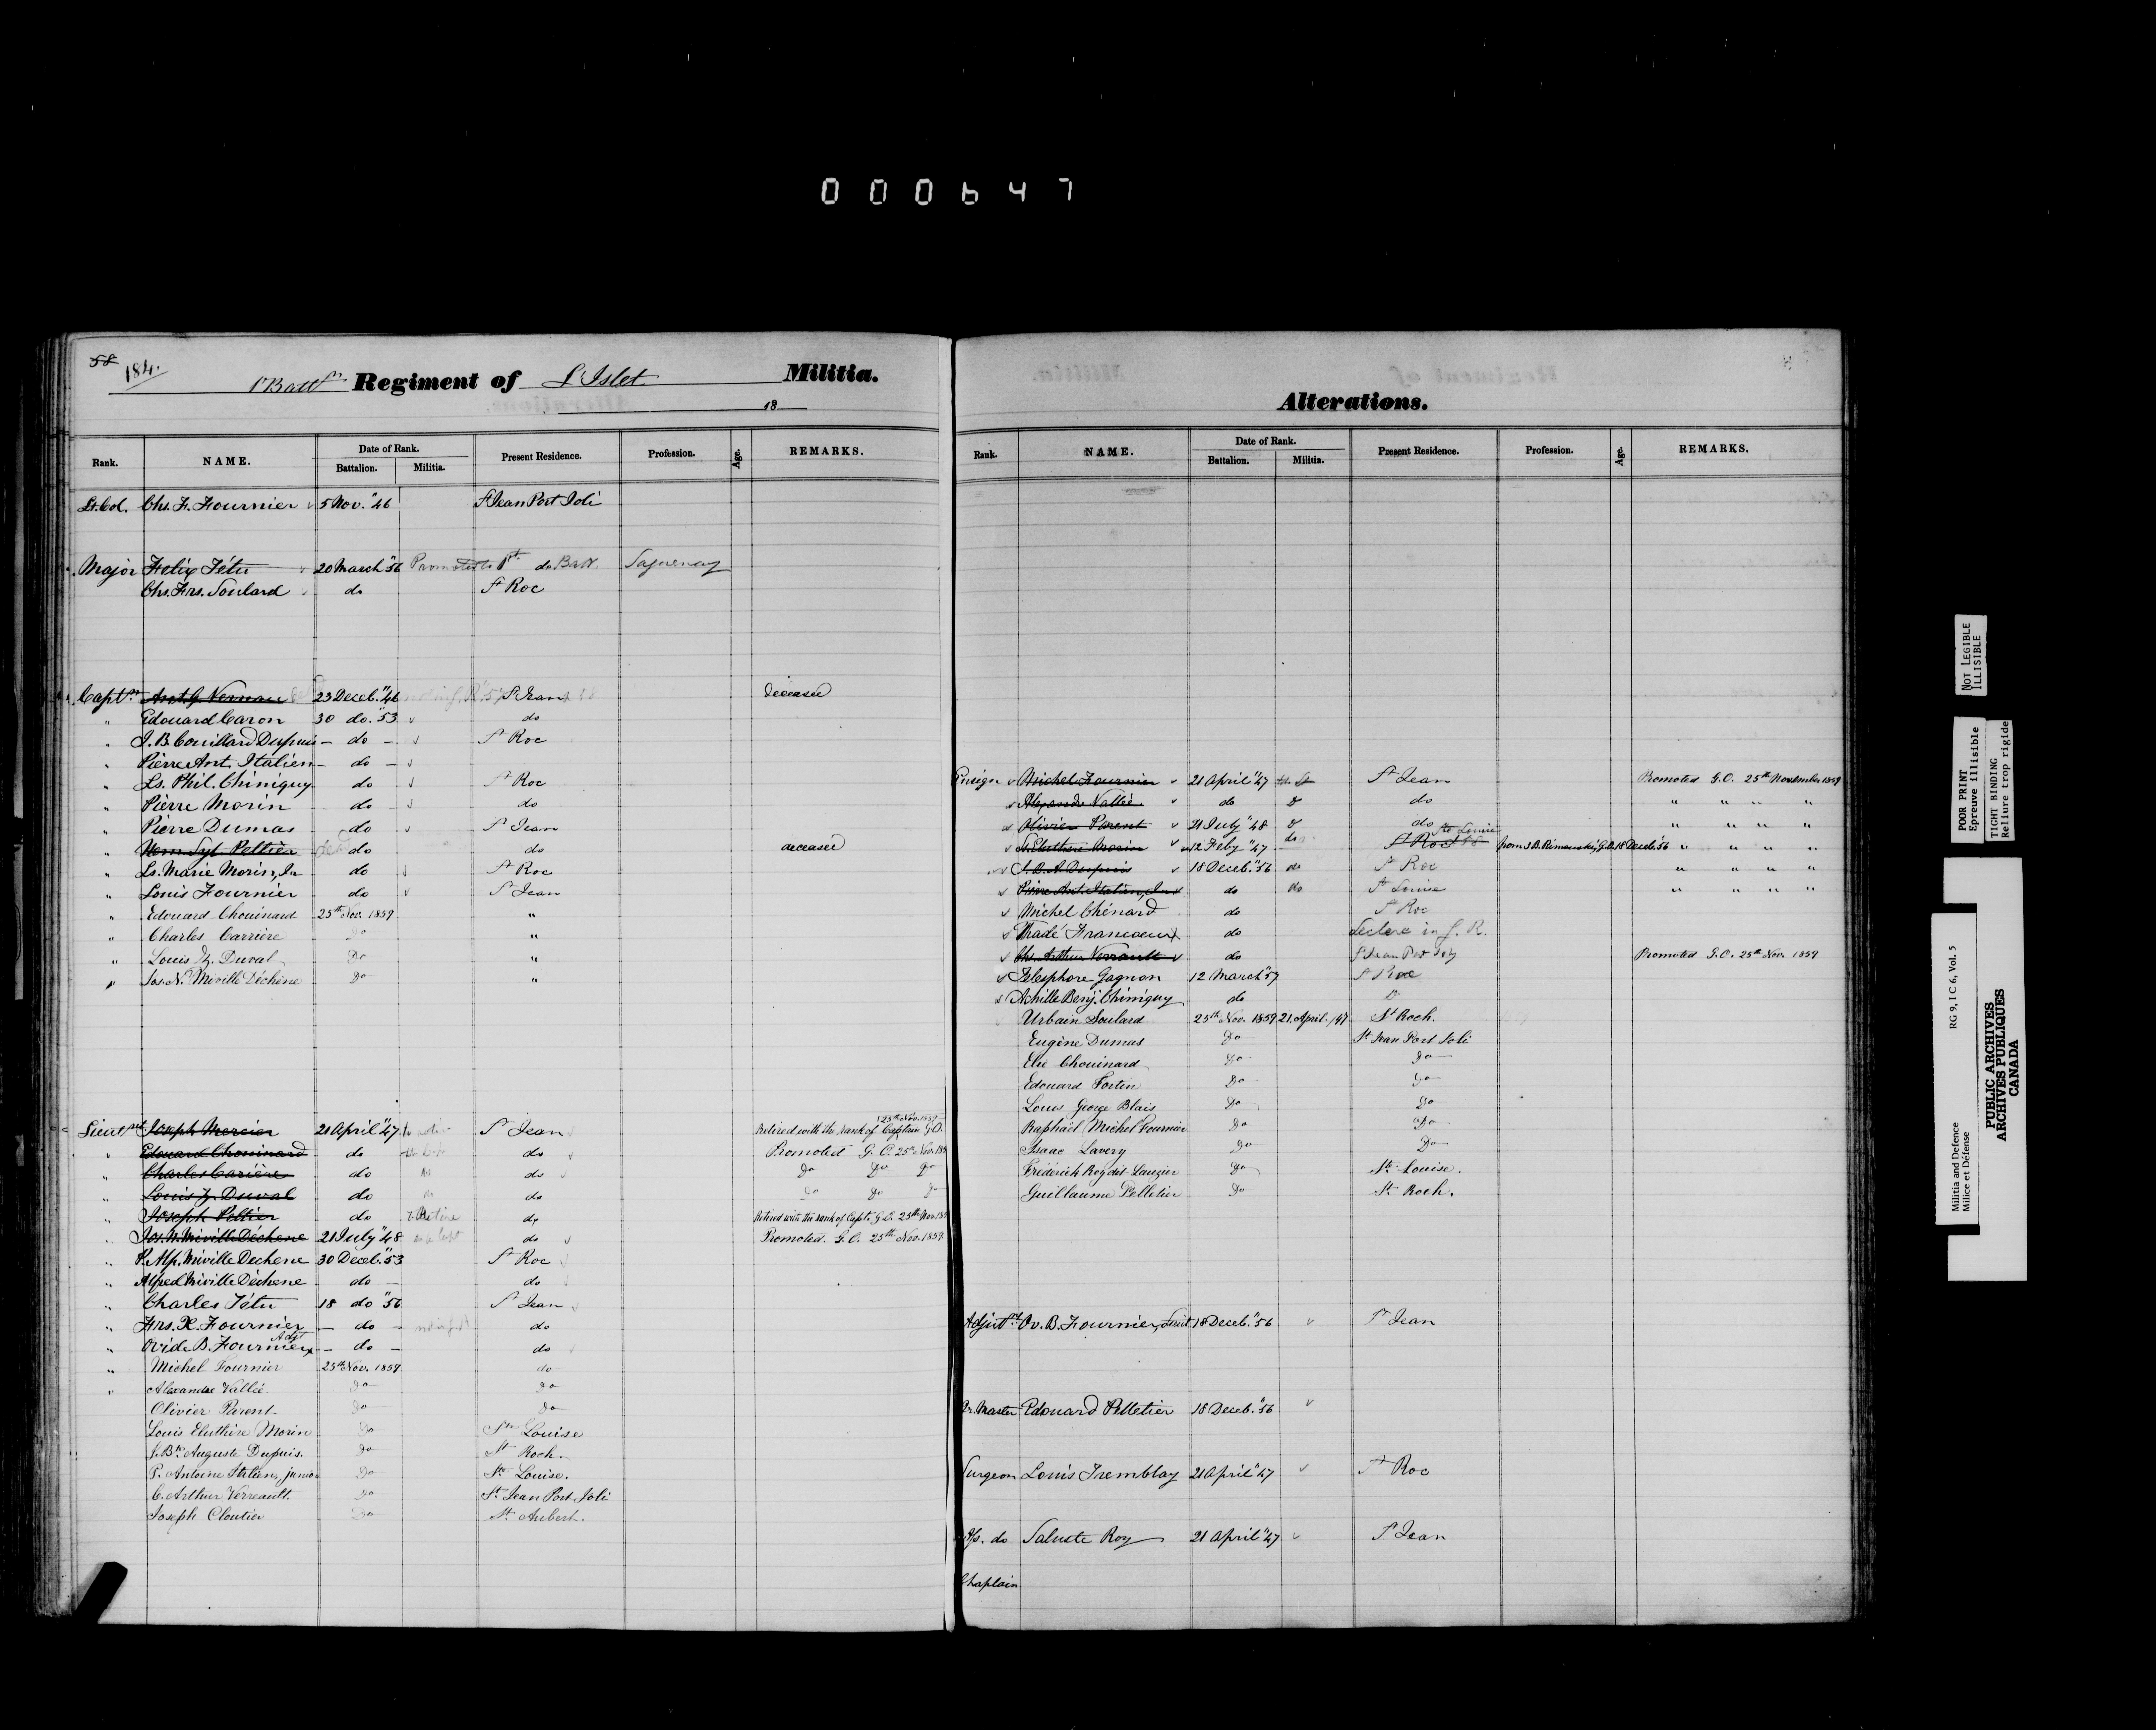 000647
58
184.
1st Battn Regiment of L'Islet Militia.
18
Rank. NAME. Date of Rank. Battalion. Militia. Present Residence. Profession. Age. REMARKS.
Lt. Col. Chs. F. Fournier 5 Nov. "46 St Jean Port Joli
Major Felix Tétu 20 March "56 Promoted to 1st do Batt. Saguenay
Chs. Frs. Soulard do St Roc
Captn 23 Deceb. "46 St Jean deceased
" Edouard Caron 30 do. "53 do
" J. B. Couillard Dupuis - do - St Roc
" Pierre Ant. Italien - do -
" Ls. Phil. Chiniguy do St Roc
" Pierre Morin do do
" Pierre Dumas do St Jean
" Nem. Syl. Peltier do do deceased
" Ls. Marie Morin, Jr do St Roc
" Louis Fournier do St Jean
" Edouard Chouinard 25th Nov. 1859 "
" Charles Carrière Do "
" Louis Z. Duval Do "
" Jos. N. Miville Déchène Do "
Lieutnt Joseph Mercier 21 April "47 St Jean Retired with the rank of Captain G.O. 25th Nov. 1859
" Edouard Chouinard do do Promoted G.O. 25th Nov. 1859
" Charles Carière do do do Do Do Do
" Louis Z. Duval do do do Do Do Do
" Joseph Peltier do Retire do Retired with the rank of Capt. G.O. 25th Nov. 1859
" Jos. N. Miville Déchene 21 July "48 do Promoted. G.O. 25th Nov. 1859
" P. Alp. Miville Dechene 30 Deceb. "53 St Roc
" Alfred Miville Déchene do - do
" Charles Tétu 18 do "56 St Jean
" Frs. X. Fournier - do - do
" Ovide B. Fournier Adjt - do - do
" Michel Fournier 25th Nov. 1859. do
" Alexandre Vallée. Do Do
Olivier Parent Do Do
Louis Eluthère Morin Do Ste Louise
J. Bte Auguste Dupuis. Do St Roch.
P. Antoine Italien, junior Do Ste Louise.
C. Arthur Verreault. Do St Jean Port Joli
Joseph Cloutier Do St Aubert.
Alterations.
Rank. NAME. Date of Rank. Battalion. Militia. Present Residence. Profession. Age. REMARKS.
Ensign Michel Fournier 21 April "47 St Jean Promoted G.O. 25th November 1859
Alexandre Vallée do do " " " "
Olivier Parent 21 July "48 do " " " "
Ls. Eluthère Morin 12 Feby "47 do St Roc Ste Louise from 3 B. Rimouski, G.O. 18 Deceb. 56 " " " "
J. B. A. Dupuis 18 Deceb. "56 do St Roc " " " "
Pierre Ant. Italien, Jr do do Ste Louise " " " "
Michel Chénard do St Roc
Thadé Francoeur do
Chs. Arthur Verrault do St Jean Port Joly Promoted G.O. 25th Nov. 1859
Telesphore Gagnon 12 March "57 St Roc
Achille Benj. Chiniguy do Do
Urbain Soulard 25th Nov. 1859 21. April. /47 St Roch.
Eugène Dumas Do St Jean Port Joli
Elie Chouinard Do Do
Edouard Fortin Do Do
Louis George Blais Do Do
Raphaël Michel Fournier Do Do
Isaac Lavery Do Do
Fréderick Roy dit Lauzier Do Ste Louise.
Guillaume Pelletier Do St. Roch.
Adjutnt Ov. B. Fournier, Lieut. 18 Deceb. "56 St Jean
Qr. Master Edouard Pelletier 18 Deceb. "56
Surgeon Louis Tremblay 21 April "47 St Roc
As. do Saluste Roy 21 April "47 St Jean
Chaplain
NOT LEGIBLE
ILLISIBLE
POOR PRINT
Epreuve illisible
TIGHT BINDING
Reliure trop rigide
RG 9, I C 6, Vol. 5
Militia and Defence
Milice et Défense
PUBLIC ARCHIVES
ARCHIVES PUBLIQUES
CANADA